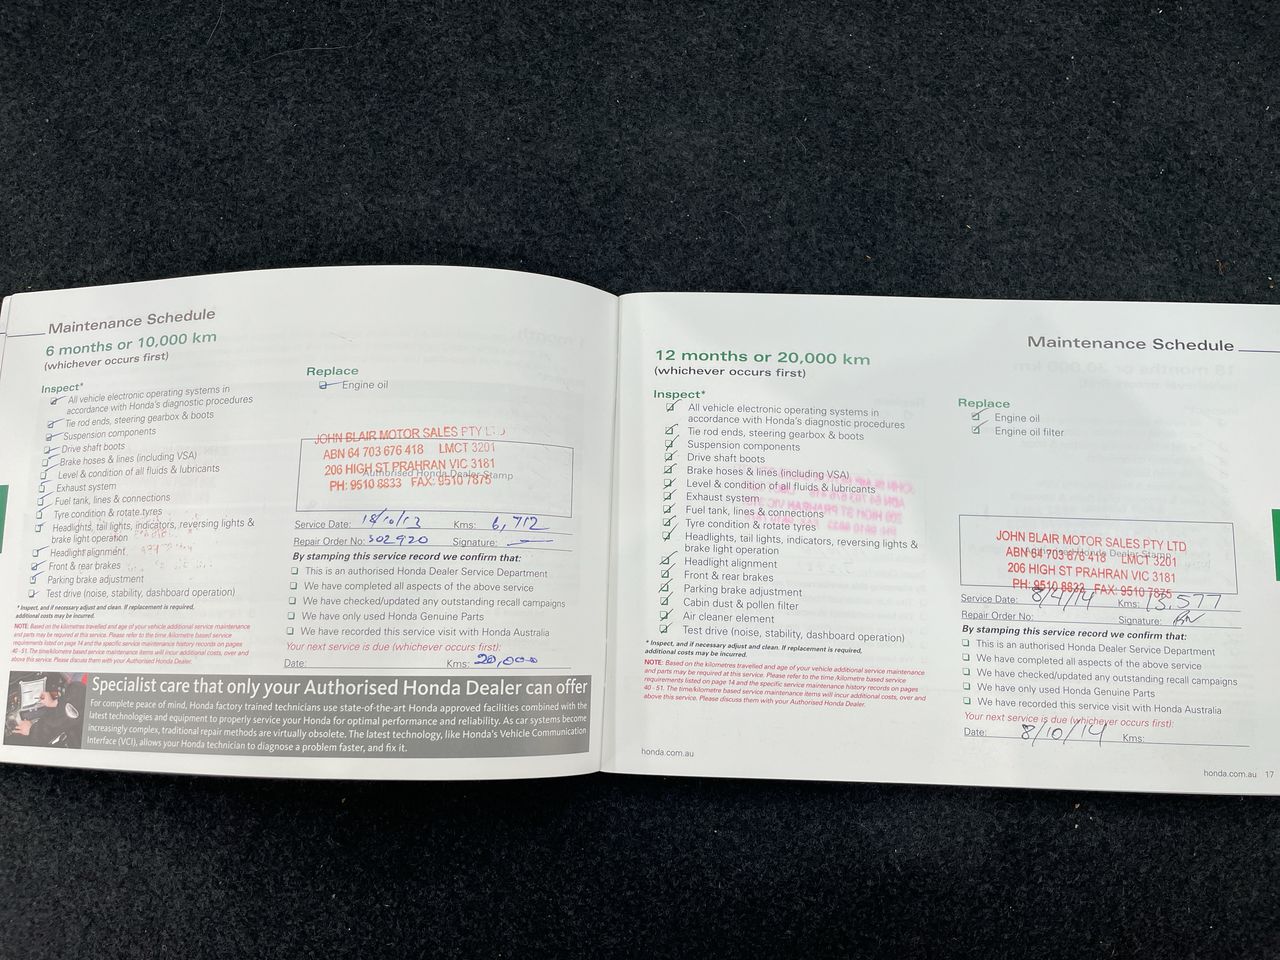 Maintenance Schedule
6 months or 10,000 km
(whichever occurs first)
Inspect*
All vehicle electronic operating systems in
accordance with Honda's diagnostic procedures
Tie rod ends, steering gearbox & boots
Suspension components
Drive shaft boots
Brake hoses & lines (including VSA)
Level & condition of all fluids & lubricants
Exhaust system
Fuel tank, lines & connections
Tyre condition & rotate tyres
Headlights, tail lights, indicators, reversing lights &
brake light operation
Headlight alignment
Front & rear brakes
Parking brake adjustment
Test drive (noise, stability, dashboard operation)
* Inspect, and if necessary adjust and clean. If replacement is required,
additional costs may be incurred.
NOTE: Based on the kilometres travelled and age of your vehicle additional service maintenance
and parts may be required at this service. Please refer to the time /kilometre based service
requirements listed on page 14 and the specific service maintenance history records on pages
40 - 51. The time/kilometre based service maintenance items will incur additional costs, over and
above this service. Please discuss them with your Authorised Honda Dealer.
Replace
Engine oil
JOHN BLAIR MOTOR SALES PTY LTD
ABN 64 703 676 418 LMCT 3201
206 HIGH ST PRAHRAN VIC 3181
Authorised Honda Dealer Stamp
PH: 9510 8833 FAX: 9510 7875
Service Date: 18/10/13 Kms: 6,712
Repair Order No: 302920 Signature:
By stamping this service record we confirm that:
This is an authorised Honda Dealer Service Department
We have completed all aspects of the above service
We have checked/updated any outstanding recall campaigns
We have only used Honda Genuine Parts
We have recorded this service visit with Honda Australia
Your next service is due (whichever occurs first):
Date: Kms: 20,000
Specialist care that only your Authorised Honda Dealer can offer
For complete peace of mind, Honda factory trained technicians use state-of-the-art Honda approved facilities combined with the
latest technologies and equipment to properly service your Honda for optimal performance and reliability. As car systems become
increasingly complex, traditional repair methods are virtually obsolete. The latest technology, like Honda's Vehicle Communication
Interface (VCI), allows your Honda technician to diagnose a problem faster, and fix it.
Maintenance Schedule
12 months or 20,000 km
(whichever occurs first)
Inspect*
All vehicle electronic operating systems in
accordance with Honda's diagnostic procedures
Tie rod ends, steering gearbox & boots
Suspension components
Drive shaft boots
Brake hoses & lines (including VSA)
Level & condition of all fluids & lubricants
Exhaust system
Fuel tank, lines & connections
Tyre condition & rotate tyres
Headlights, tail lights, indicators, reversing lights &
brake light operation
Headlight alignment
Front & rear brakes
Parking brake adjustment
Cabin dust & pollen filter
Air cleaner element
Test drive (noise, stability, dashboard operation)
* Inspect, and if necessary adjust and clean. If replacement is required,
additional costs may be incurred.
NOTE: Based on the kilometres travelled and age of your vehicle additional service maintenance
and parts may be required at this service. Please refer to the time /kilometre based service
requirements listed on page 14 and the specific service maintenance history records on pages
40 - 51. The time/kilometre based service maintenance items will incur additional costs, over and
above this service. Please discuss them with your Authorised Honda Dealer.
honda.com.au
Replace
Engine oil
Engine oil filter
JOHN BLAIR MOTOR SALES PTY LTD
Authorised Honda Dealer Stamp
ABN 64 703 676 418 LMCT 3201
206 HIGH ST PRAHRAN VIC 3181
PH: 9510 8833 FAX: 9510 7875
Service Date: 8/4/14 Kms: 15,577
Repair Order No: Signature:
By stamping this service record we confirm that:
This is an authorised Honda Dealer Service Department
We have completed all aspects of the above service
We have checked/updated any outstanding recall campaigns
We have only used Honda Genuine Parts
We have recorded this service visit with Honda Australia
Your next service is due (whichever occurs first):
Date: 8/10/14 Kms:
honda.com.au 17